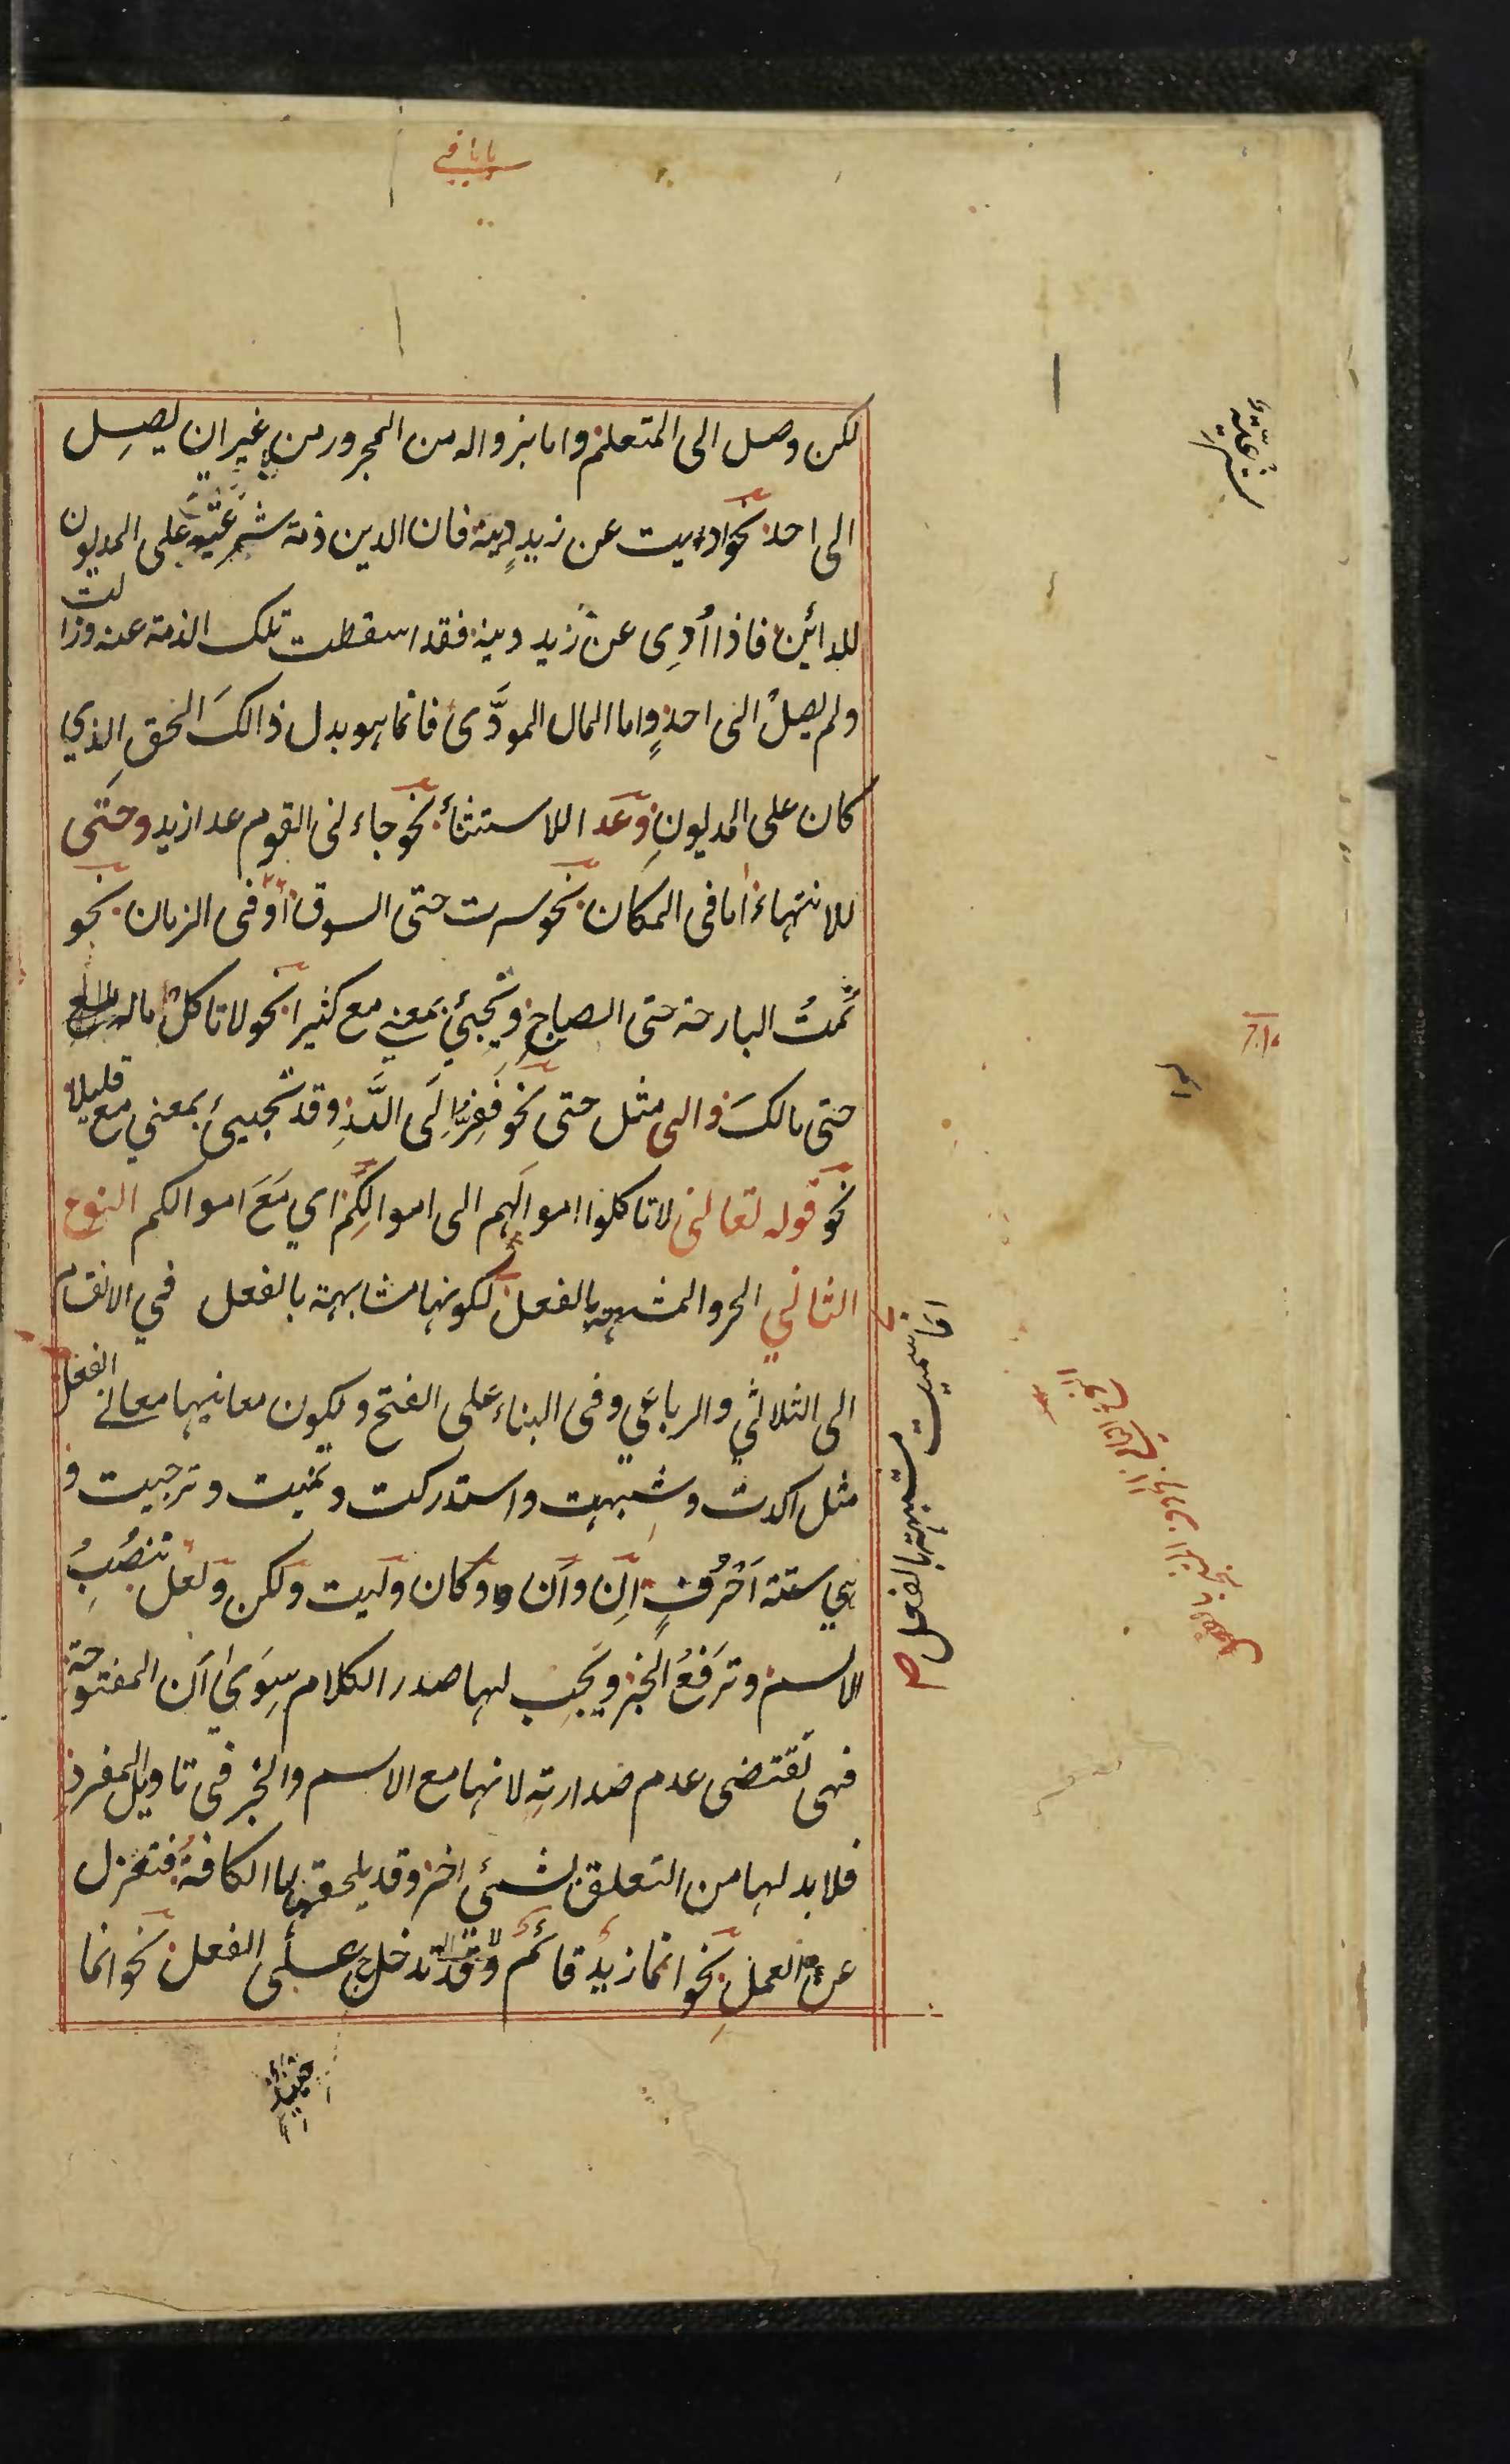 لكن وصل الى المتعلم واما بزواله من المجرور من غير ان يصل
الى احد نحو اديت عن زيد دينه فان الدين ذمة شرعية على المديون
للدائن فاذا أُدى عن زيد دينه فقد اسقطت تلك الذمة عنه وزالت
ولم يصل الى احدٍ واما المال المودَّى فانما هو بدل ذالكَ الحق الذي
كان على المديون وعدا للاستثناء نحو جاءنى القوم عدا زيد وحتى
للانتهاء اما فى المكان نحو سرت حتى السوق او فى الزمان نحو
نمتُ البارحة حتى الصباح وتجيئ بمعنى مع كثيرا نحو لا تاكل ماله
حتى مالكَ والى مثل حتى نحو ففروا الى اللّه وقد تجيئ بمعنى مع قليلا
نحو قوله تعالى لا تاكلوا اموالهم الى اموالكم اي مَعَ اموالكم النوع
الثاني الحرو المشبهة بالفعل لكونها مشابهة بالفعل في الانقسام
الى الثلاثي والرباعي وفى البناء على الفتح ولكون معانيها معانى الفعل
مثل اكدت وشبهت واستدركت وتمنيت وترجيت و
هي ستة اَحْرُفٍ اِنّ واَن وكان وليت ولكن ولعل تنصُبُ
الاسم وترفَعُ الخبر ويجب لها صدر الكلام سِوَى اَن المفتوحة
فهى تقتضى عدم صدارته لانها مع الاسم والخبر فى تاويل المفرد
فلا بد لها من التعلق بشئ اخر وقد يلحقها ما الكافة فتعزل
عن العمل نحو انما زيد قائم وقد تدخل على الفعل نحو انما
انما سميت مشبهة بالفعل